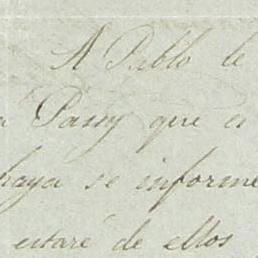 A Pablo le
Passy que es
haya se informe
estaré de ellos